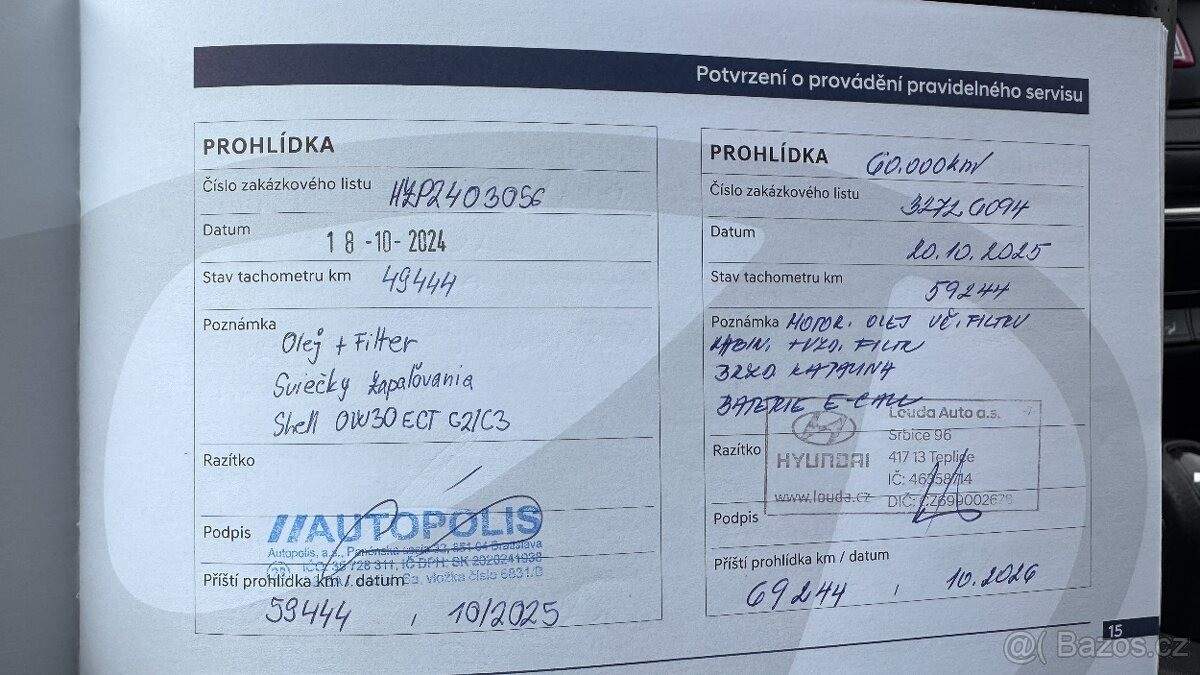 Potvrzení o provádění pravidelného servisu
PROHLÍDKA
Číslo zakázkového listu HZP2403056
Datum 18-10-2024
Stav tachometru km 49444
Poznámka
Olej + Filter
Sviečky zapaľovania
Shell 0W30 ECT C2/C3
Razítko
//AUTOPOLIS
Podpis
Autopolis, a.s., Panónska cesta 32, 851 04 Bratislava
IČO: 35 728 311, IČ DPH: SK 2020241938
vložka číslo 6831/B
Příští prohlídka km / datum
59444 , 10/2025
PROHLÍDKA 60.000km
Číslo zakázkového listu 32726094
Datum 20.10.2025
Stav tachometru km 59244
Poznámka MOTOR. OLEJ VČ. FILTRU
KABIN. + VZD. FILTR
BRZD KAPALINA
BATERIE E-CALL
Razítko
HYUNDAI
www.louda.cz
Louda Auto a.s. -7-
Srbice 96
417 13 Teplice
IČ: 46358714
DIČ: CZ699002628
Podpis
Příští prohlídka km / datum
69244 , 10.2026
15
@( Bazos.cz